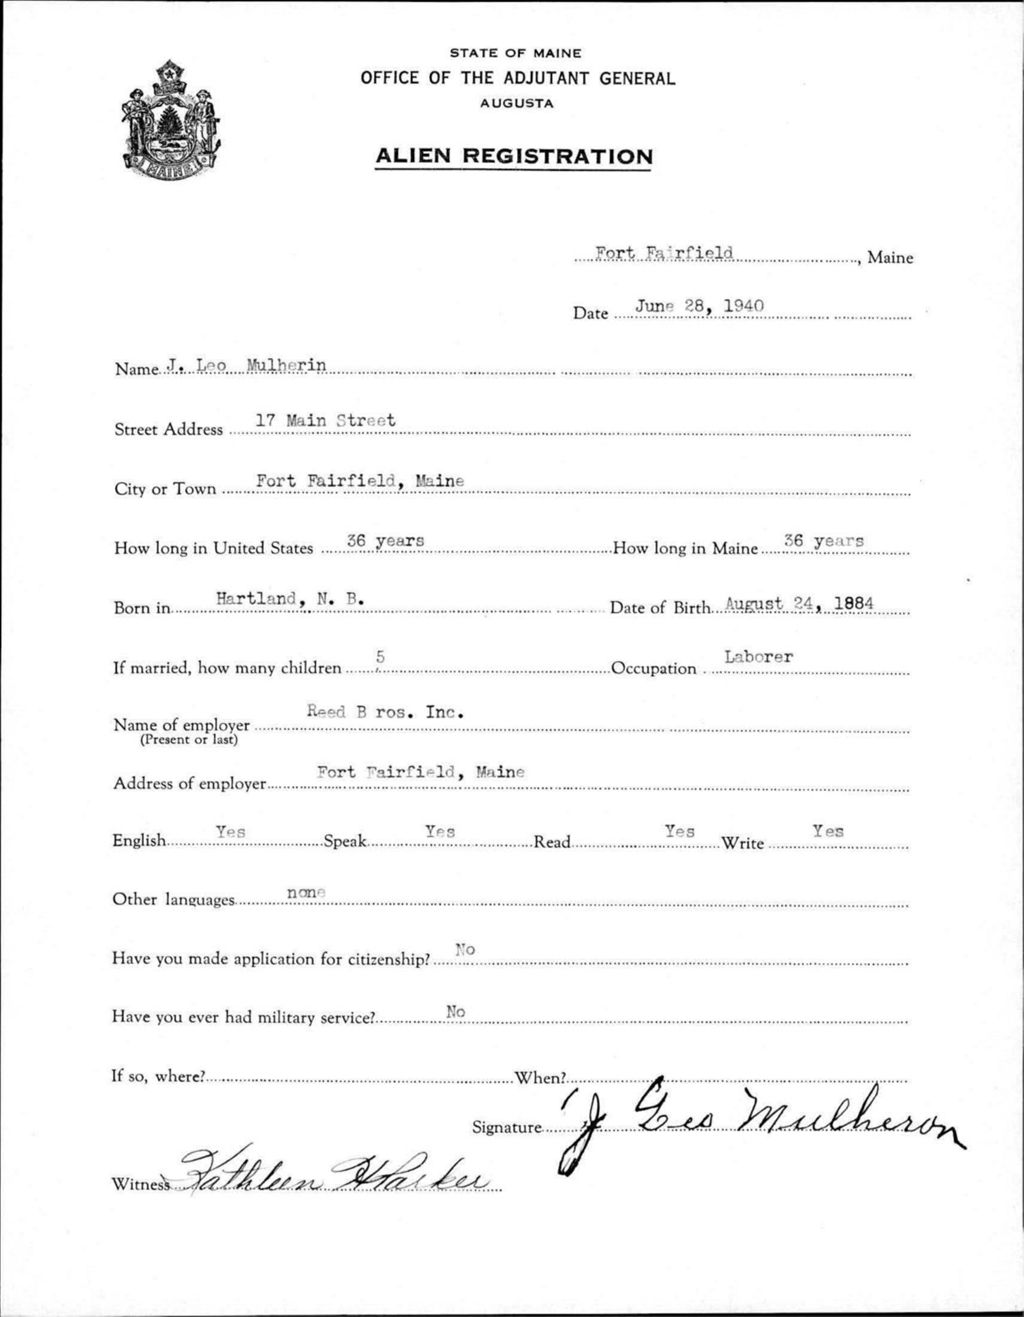 STATE OF MAINE
OFFICE OF THE ADJUTANT GENERAL
AUGUSTA
ALIEN REGISTRATION
MAINE
Fort Fairfield, Maine
Date June 28, 1940
Name J. Leo Mulherin
Street Address 17 Main Street
City or Town Fort Fairfield, Maine
How long in United States 36 years How long in Maine 36 years
Born in Hartland, N. B. Date of Birth August 24, 1884
If married, how many children 5 Occupation Laborer
Name of employer Reed B ros. Inc.
(Present or last)
Address of employer Fort Fairfield, Maine
English Yes Speak Yes Read Yes Write Yes
Other languages none
Have you made application for citizenship? No
Have you ever had military service? No
If so, where? When?
Signature J Leo Mulheron
Witness Kathleen H Parker